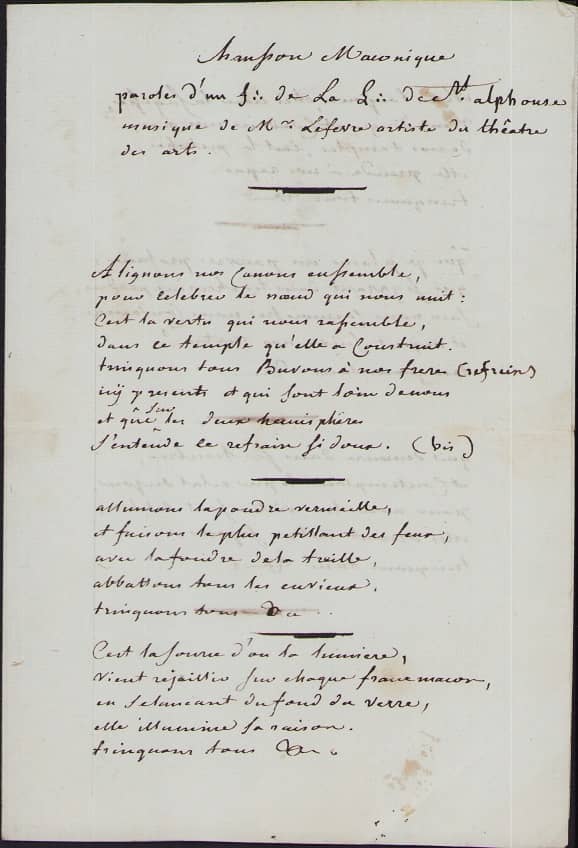 Chanson Maconique
paroles d'un f∴ de La L∴ de St alphonse
musique de Mr Lefevre artiste du théatre
des arts.
Alignons nos Canons ensemble,
pour celebrer le nœud qui nous unit:
C'est la vertu qui nous rassemble,
dans ce temple qu'elle a Construit.
trinquons tous Buvons à nos freres (refrein)
icy presents et qui sont loin de nous
et que sur les deux hemisphères
s'entende ce refrain si doux. (bis)
allumons la poudre vermeille,
et faisons le plus petillant des feux,
avec la foudre de la treille,
abbattons tous les envieux.
trinquons tous &c
C'est la source d'ou la lumiere,
vient rejaillir sur chaque franc macon,
en s'elancant du fond du verre,
elle illumine sa raison.
trinquons tous &c